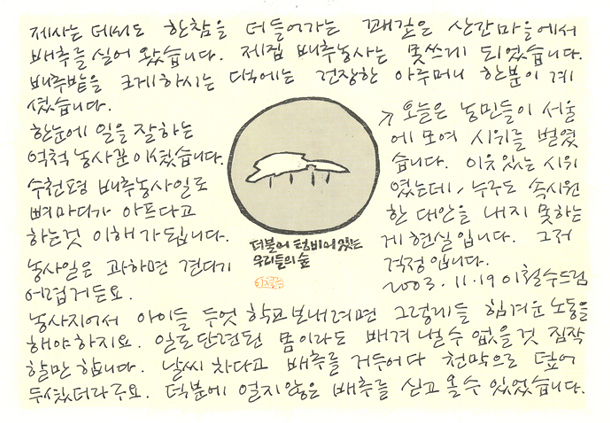 제사는 데서도 한참을 더 들어가는 꽤 깊은 산간마을에서
배추를 실어 왔습니다. 제집 배추농사는 못쓰게 되었습니다.
배추밭을 크게 하시는 댁에는 건장한 아주머니 한분이 계
셨습니다.
한눈에 일을 잘하는
억척 농사꾼이셨습니다.
수천평 배추농사일로
뼈마디가 아프다고
하는것 이해가 됩니다.
농사일은 과하면 견디기
어렵거든요.
농사지어서 아이들 두엇 학교 보내려면 그렇게들 힘겨운 노동을
해야 하지요. 일로 단련된 몸이라도 배겨 낼 수 없을 것 짐작
할만 합니다. 날씨 차다고 배추를 거두어다 천막으로 덮어
두셨더라구요. 덕분에 얼지않은 배추를 싣고 올 수 있었습니다.
더불어 텅비어있는
우리들의 숲
↗ 오늘은 농민들이 서울
에 모여 시위를 벌였
습니다. 이유있는 시위
였는데, 누구도 속시원
한 대안을 내지 못하는
게 현실입니다. 그저
걱정입니다.
2003. 11. 19 이철수드림